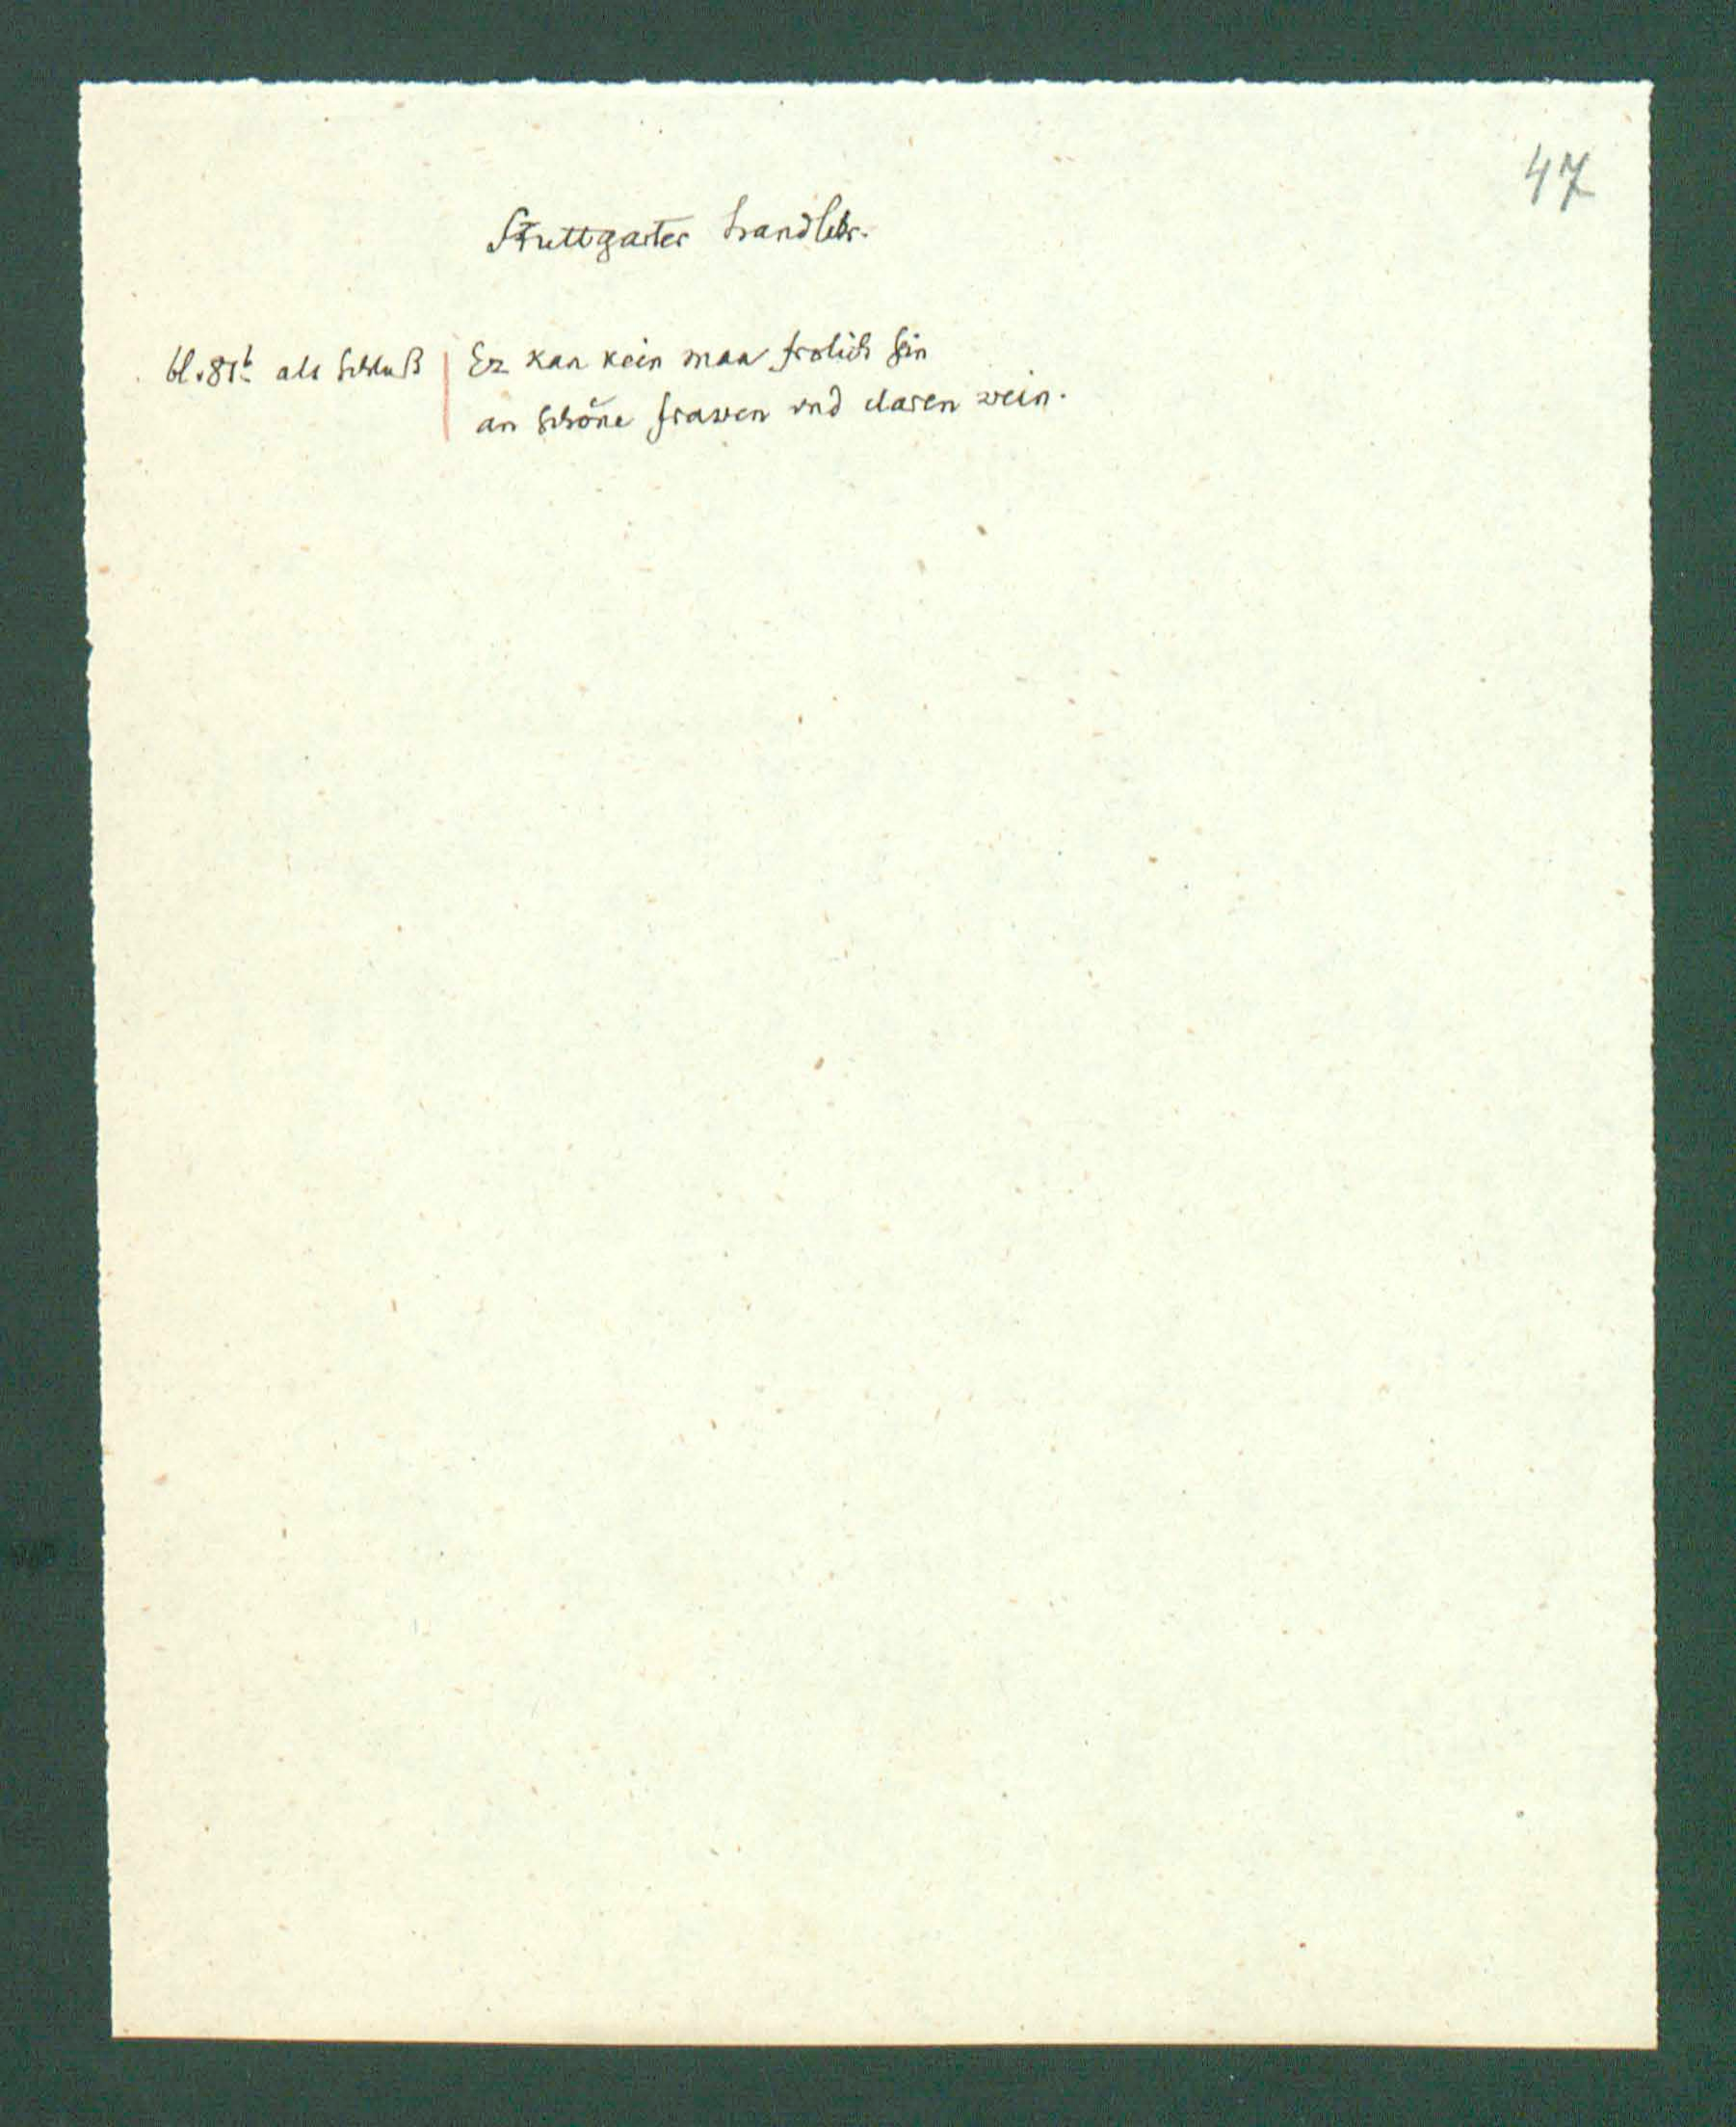 47
Stuttgarter handschr.
bl. 81b als schluß | Ez kan kein man frolich sin
an schöne frawen vnd claren wein.